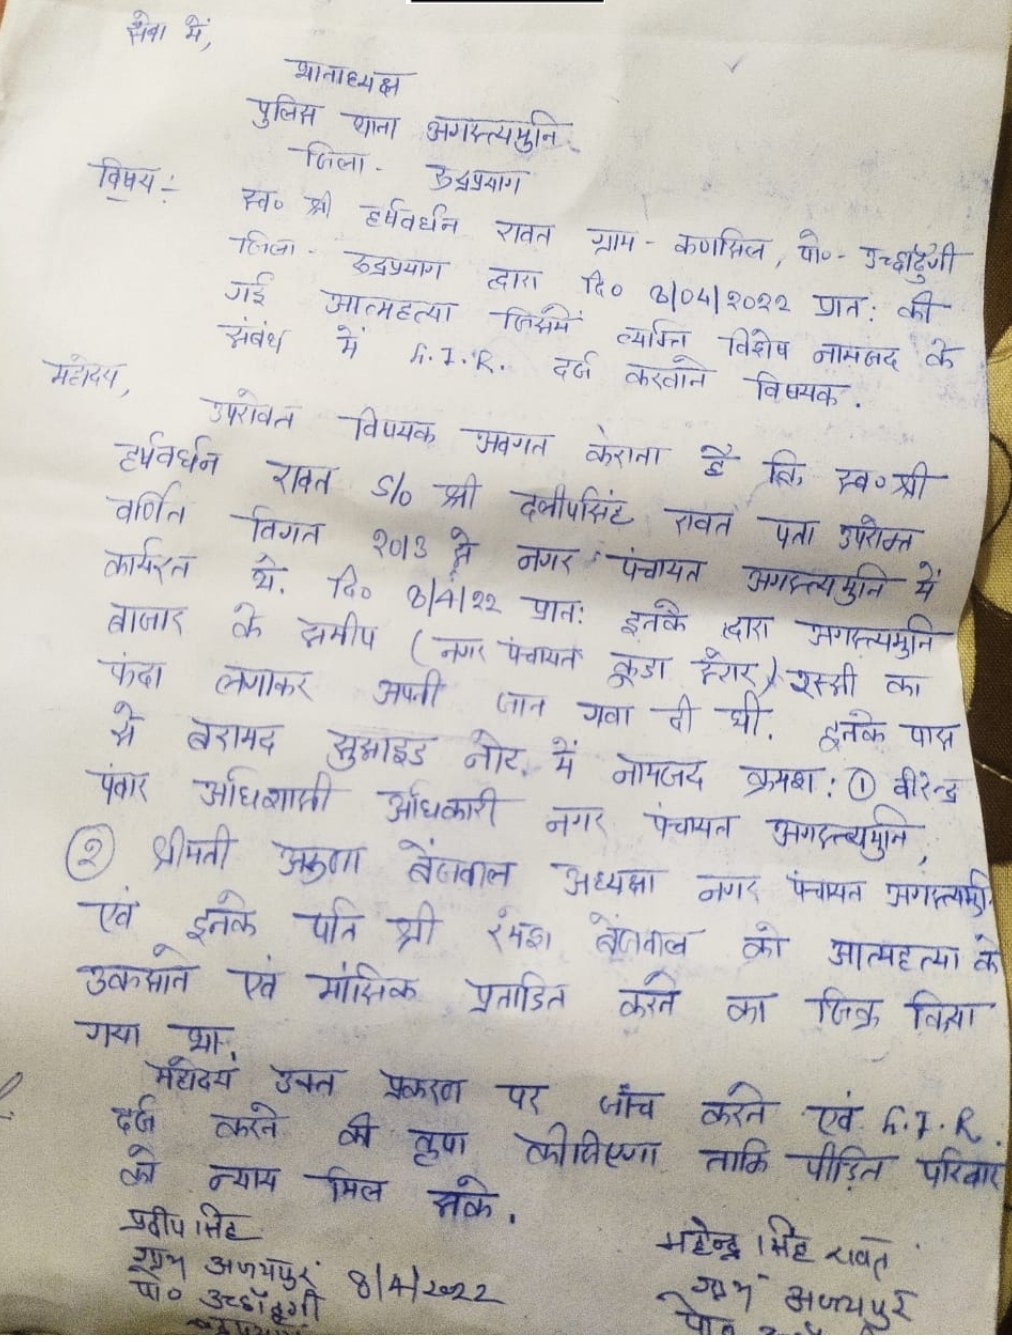 सेवा में,
थानाध्यक्ष
पुलिस थाना अगस्त्यमुनि
जिला - रुद्रप्रयाग
विषय :- स्व० श्री हर्षवर्धन रावत ग्राम - कणसिल, पो०- उच्छाढुंगी
जिला - रुद्रप्रयाग द्वारा दि० 8/04/2022 प्रात: की
गई आत्महत्या जिसमें व्यक्ति विशेष नामजद के
संबंध में F.I.R. दर्ज करवाने विषयक.
महोदय,
उपरोक्त विषयक अवगत कराना है कि स्व० श्री
हर्षवर्धन रावत S/o श्री दलीपसिंह रावत पता उपरोक्त
वर्णित विगत 2013 से नगर पंचायत अगस्त्यमुनि में
कार्यरत थे. दि० 8/4/22 प्रात: इनके द्वारा अगस्त्यमुनि
बाजार के समीप (नगर पंचायत कूडा) रस्सी का
फंदा लगाकर अपनी जान गवा दी थी. इनके पास
से बरामद सुसाइड नोट में नामजद क्रमश: ① वीरेन्द्र
पंवार अधिशासी अधिकारी नगर पंचायत अगस्त्यमुनि,
② श्रीमती अरुणा बेंजवाल अध्यक्षा नगर पंचायत अगस्त्यमुनि
एवं इनके पति श्री रमेश बेंजवाल को आत्महत्या के
उकसाने एवं मांसिक प्रताडित करने का जिक्र किया
गया था.
महोदय उक्त प्रकरण पर जाँच करने एवं F.I.R.
दर्ज करने की कृपा कीजिएगा ताकि पीड़ित परिवार
को न्याय मिल सके.
प्रदीप सिंह
ग्राम अजयपुर 8/4/2022
पो० उच्छाढुंगी
महेन्द्र सिंह रावत
ग्राम अजयपुर
पो०